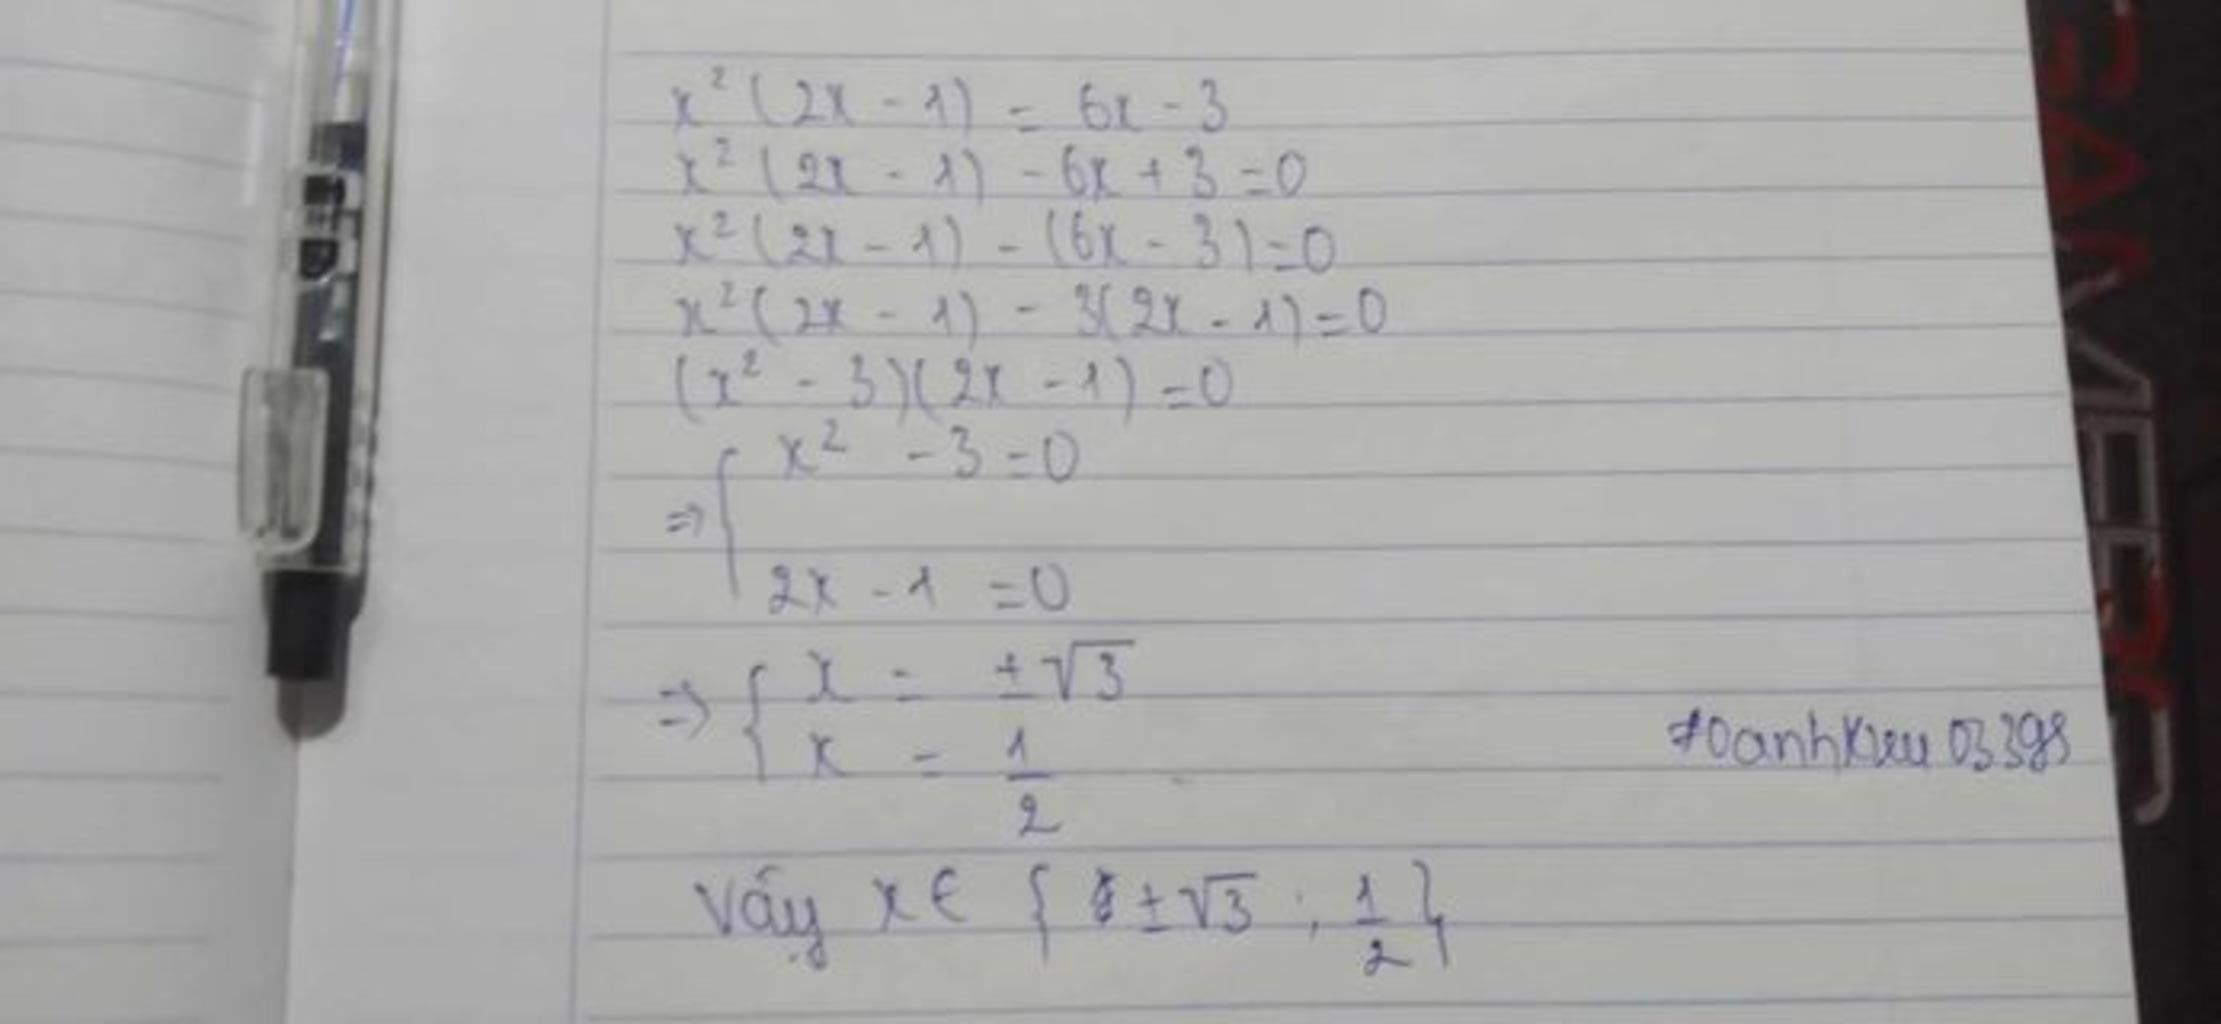 x² (2x - 1) = 6x - 3
x² (2x - 1) - 6x + 3 = 0
x² (2x - 1) - (6x - 3) = 0
x² (2x - 1) - 3(2x - 1) = 0
(x² - 3)(2x - 1) = 0
x² - 3 = 0
⇒ {
2x - 1 = 0
⇒ { x = ±√3
x = 1/2
Vậy x ∈ { ±√3 ; 1/2 }